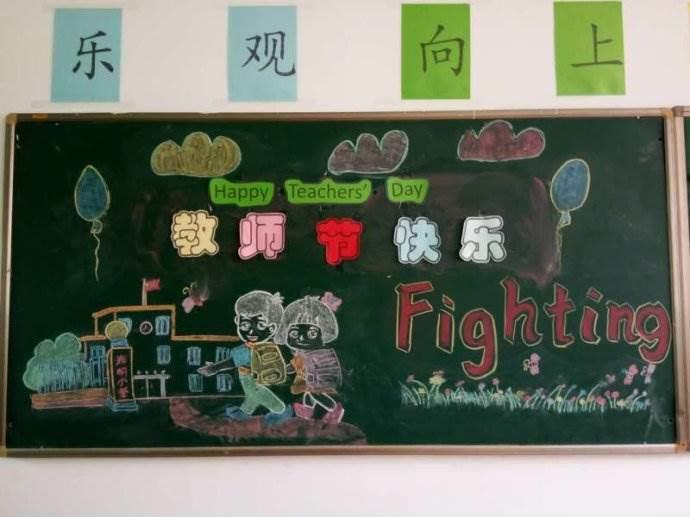 乐观向上
Happy Teachers' Day
教师节快乐
Fighting
光明小学